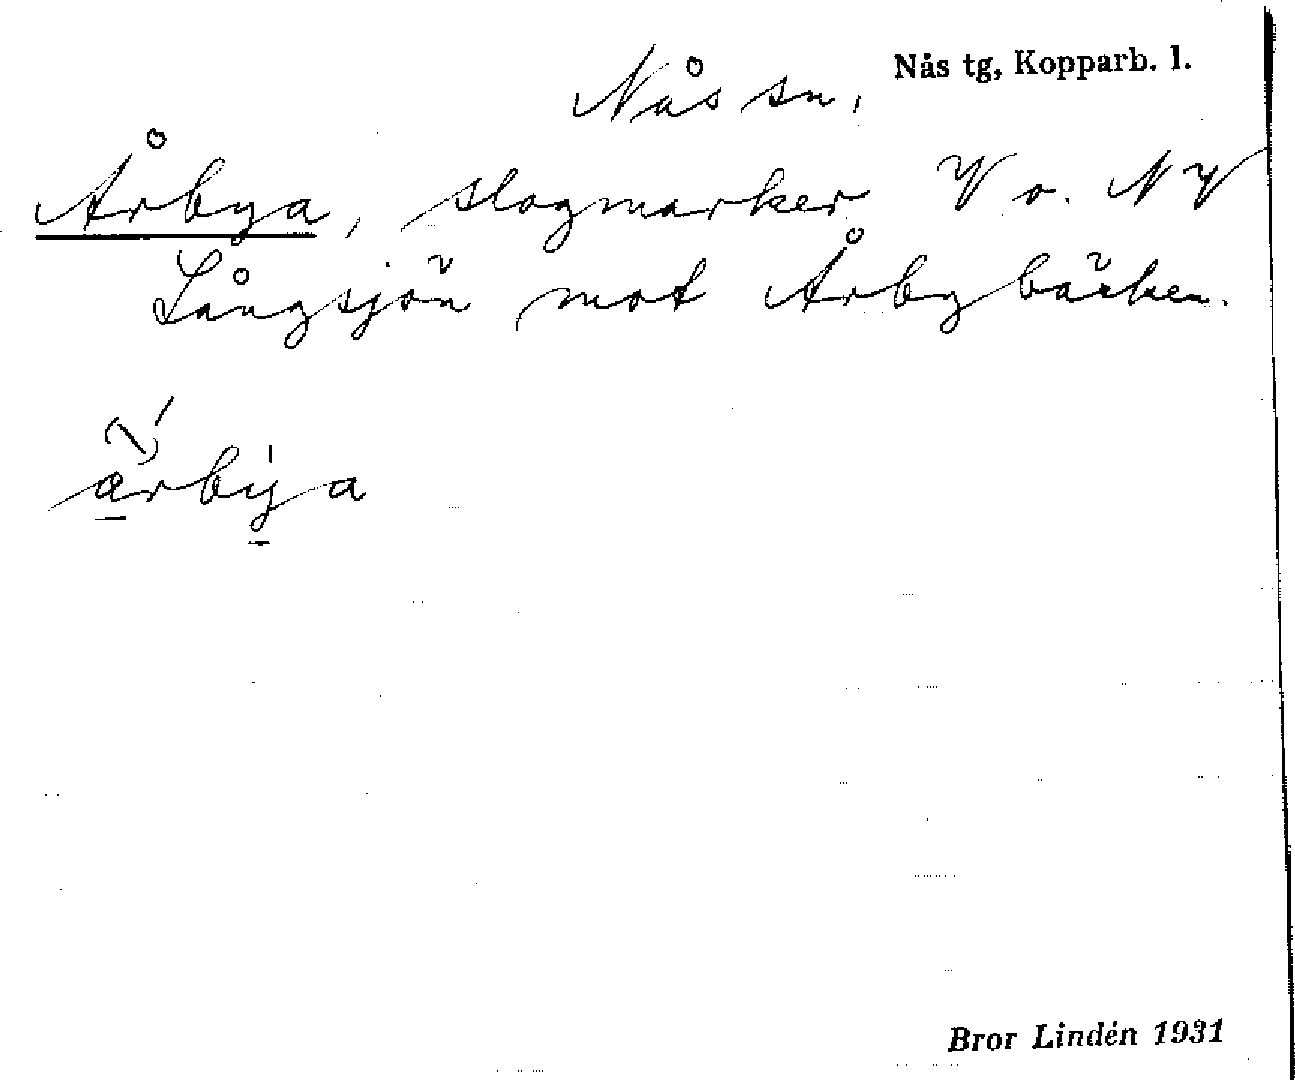 Nås tg, Kopparb. l.
Nås sn.
Årbya, slogmarker V o. NV
Långsjön mot Årbybäcken.
Bror Lindén 1931